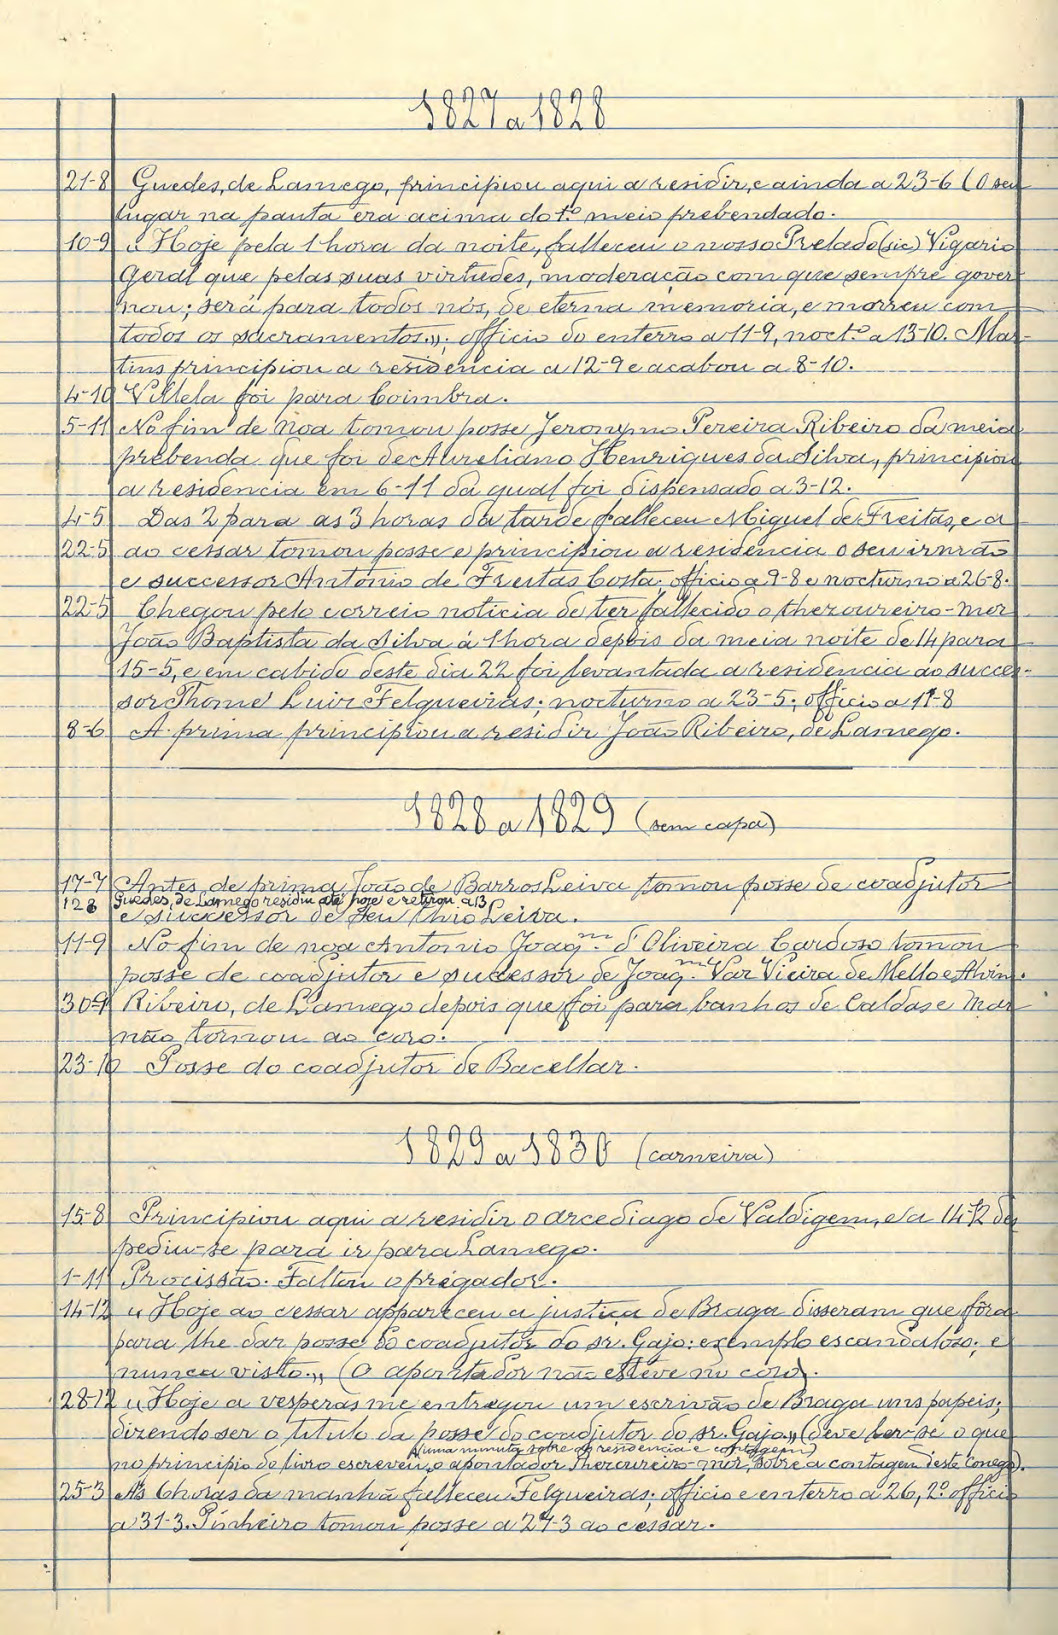 1827 a 1828
21-8 Guedes, de Lamego, principiou aqui a residir, e ainda a 23-6 (O seu
lugar na pauta era acima do 1.º meio prebendado.
10-9 "Hoje pela 1 hora da noite, falleceu o nosso Prelado (sic) Vigario
Geral que pelas suas virtudes, moderação com que sempre gover-
nou; será para todos nós, de eterna memoria, e morreu com
todos os sacramentos."; officio do enterro a 11-9, noct.º a 13-10. Mar-
tins principiou a residencia a 12-9 e acabou a 8-10.
4-10 Villela foi para Coimbra.
5-11 No fim de Noa tomou posse Jeronymo Pereira Ribeiro da meia
prebenda que foi de Aureliano Henriques da Silva, principiou
a residencia em 6-11 da qual foi dispensado a 3-12.
4-5 Das 2 para as 3 horas da tarde falleceu Miguel de Freitas, e a
22-5 ao cessar tomou posse e principiou a residencia o seu irmão
e successor Antonio de Freitas Costa; officio a 9-8 e nocturno a 26-8.
22-5 Chegou pelo correio noticia de ter fallecido o thezoureiro-mor
João Baptista da Silva á 1 hora depois da meia noite de 14 para
15-5, e em cabido deste dia 22 foi levantada a residencia ao succes-
sor Thomé Luiz Felgueiras; nocturno a 23-5; officio a 11-8
8-6 A prima principiou a residir João Ribeiro, de Lamego.
1828 a 1829 (sem capa)
17-7 Antes de prima João de Barros Leiva tomou posse de coadjutor
12 8 Guedes, de Lamego residiu até hoje e retirou a 13
e successor de seu thio Leiva.
11-9 No fim de noa Antonio Joaq.m d'Oliveira Cardoso tomou
posse de coadjutor e sucessor de Joaq.m Vaz Vieira de Mello e Alvim.
30-9 Ribeiro, de Lamego depois que foi para banhos de Caldas e Mar
não tornou ao coro.
23-10 Posse do coadjutor de Bacellar.
1829 a 1830 (carneira)
15-8 Principiou aqui a residir o arcediago de Valdigem, e a 14-12 des
pediu-se para ir para Lamego.
1-11 Procissão. Faltou o prégador.
14-12 "Hoje ao cessar appareceu a justiça de Braga disseram que fôra
para lhe dar posse do coadjutor do sr. Gajo: exemplo escandaloso; e
nunca visto." (O apontador não esteve no coro).
28-12 "Hoje a vesperas me entregou um escrivão de Braga uns papeis;
dizendo ser o titulo da posse do coadjutor do sr. Gajo" (deve ler-se o que
(uma minuta sobre a residencia e contagem)
no principio do livro escreveu, o apontador Thezoureiro-mor, sobre a contagem deste conego).
25-3 Ás 6 horas da manhã falleceu Felgueiras; officio e enterro a 26, 2.º officio
a 31-3. Pinheiro tomou posse a 27-3 ao cessar.